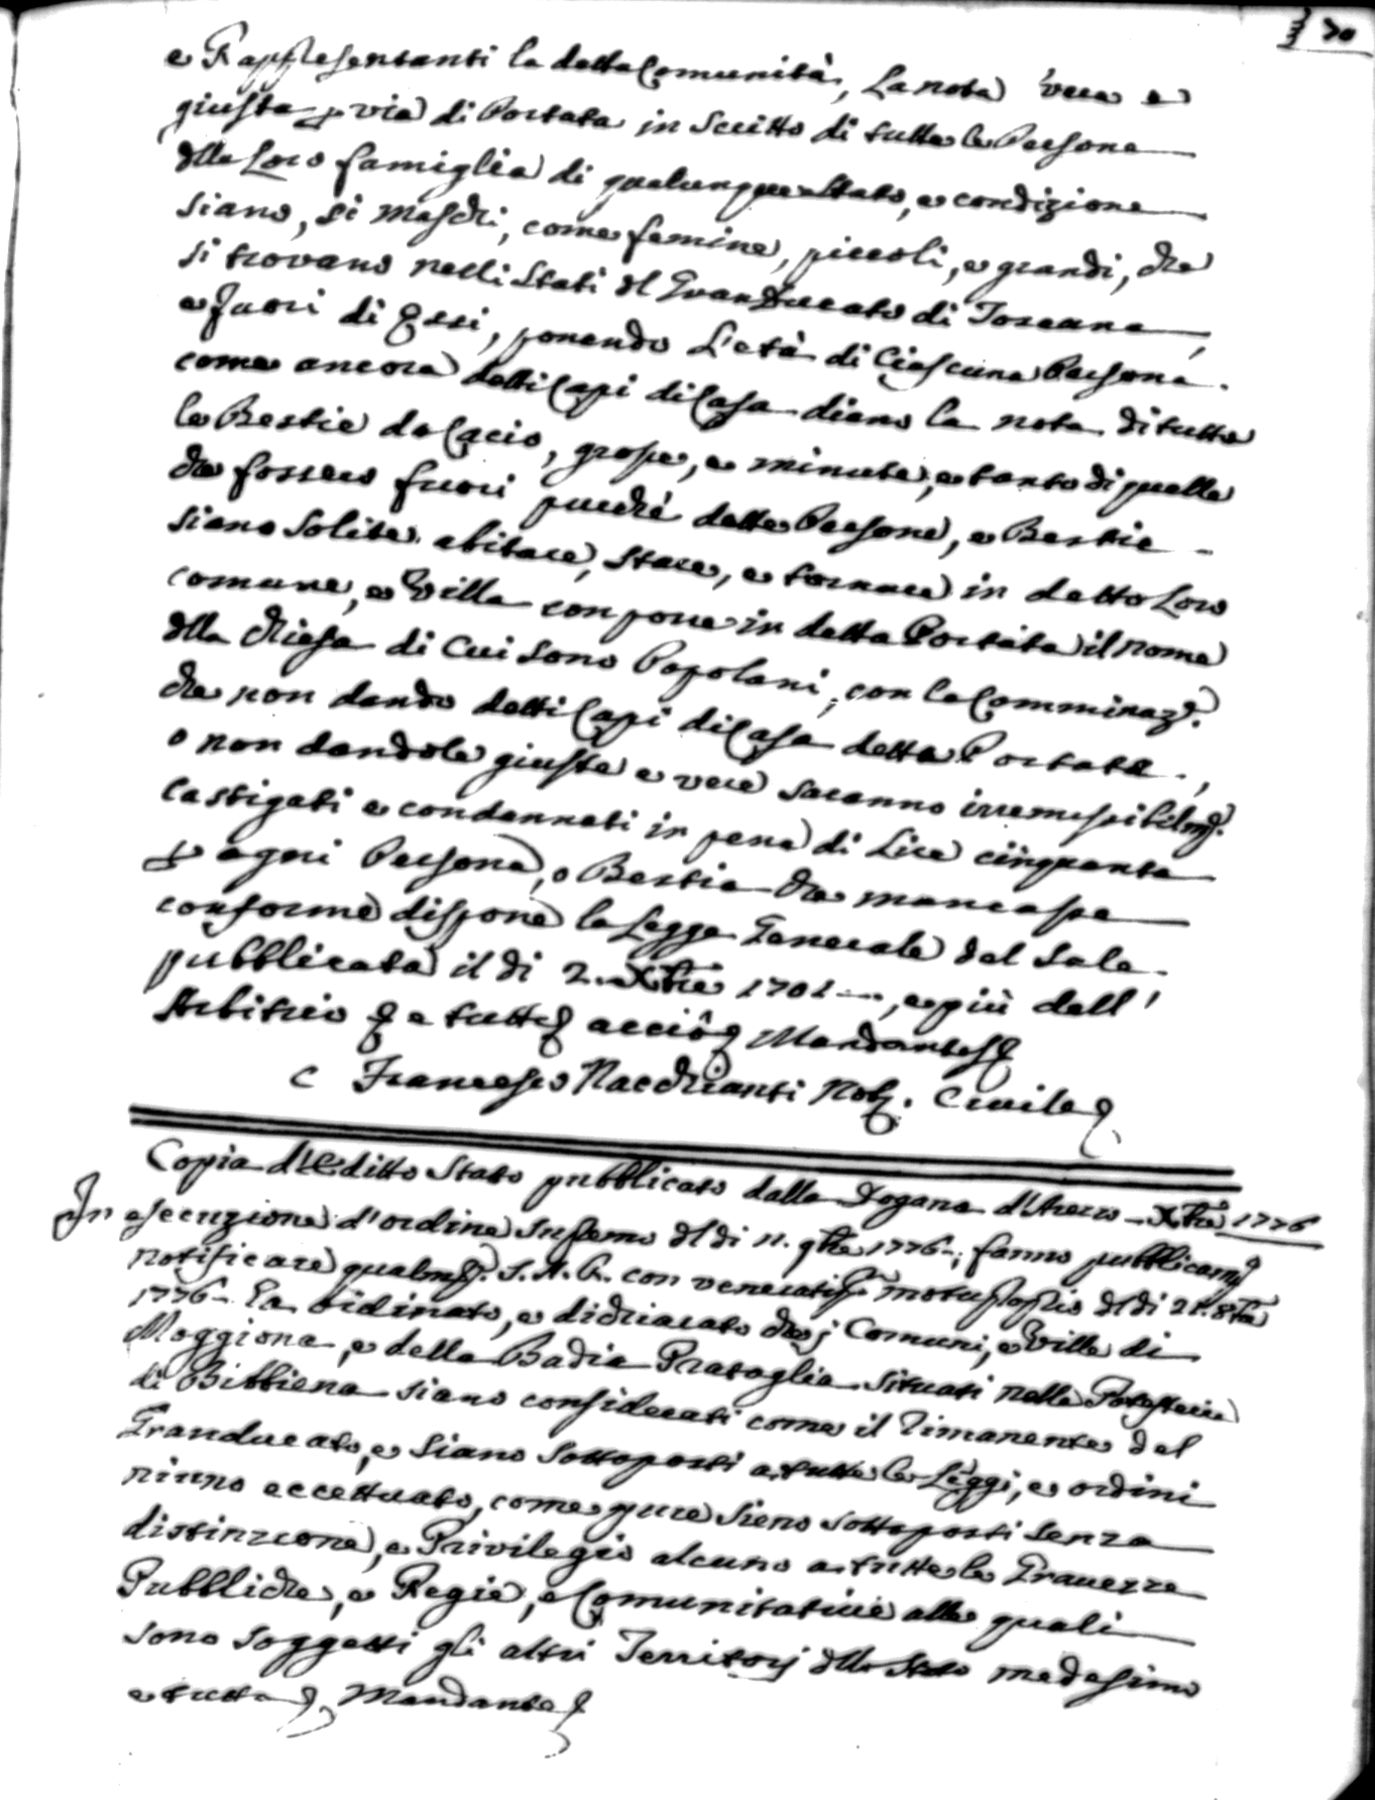 30
e Rappresentanti la detta Comunità, La nota vera e
giusta p via di Portata in Scritto di tutte le Persone
dlla Loro famiglia di qualunque Stato, e condizione
siano, si Maschi, come femine, piccoli, e grandi, che
si trovano nelli Stati dl Gran Ducato di Toscana,
e fuori di Essi, ponendo L'età di Ciascuna Persona.
come ancora detti Capi di Casa diano la nota di tutte
le Bestie da Cacio, grosse, e minute, e tanto di quelle
che fossero fuori purchè dette Persone, e Bestie
siano Solite abitare, stare, e tornare in detto Loro
comune, e Villa con porre in detta Portata il nome
dlla Chiesa di Cui sono Popolani, con la Comminaz.e
che non dando detti Capi di Casa detta Portata,
o non dandole giuste e vere saranno irremissibilm.
Castigati e condennati in pena di Lire cinquanta
p ogni Persona, o Bestia che mancasse
conforme dispone la Legge Generale del Sale
pubblicata il di 2. Xbre 1701, e più dell'
Arbitrio e tutto acciò Mandantes
Francesco Nacchianti Not. Civile
Copia dll'Editto Stato pubblicato dalla Dogana d'Arezzo Xbre 1776
In esecuzione d'ordine Supremo dl di 11. 9bre 1776, fanno pubblicam.
notificare qualm. S. A. R. con veneratis. motuproprio dl di 21. 8bre
1776 ha ordinato, e dichiarato che i Comuni, e Ville di
Moggiona, e della Badia Prataglia situati nella Potesteria
di Bibbiena siano considerati come il rimanente del
Granducato, e siano sottoposti a tutte le Leggi, e ordini
niuno eccettuato, come pure sieno sottoposti senza
distinzione, e Privilegio alcuno a tutte le Gravezze
Pubbliche, e Regie, e Comunitative alle quali
sono soggetti gli altri Territorj dllo Stato medesimo
e tutto Mandante